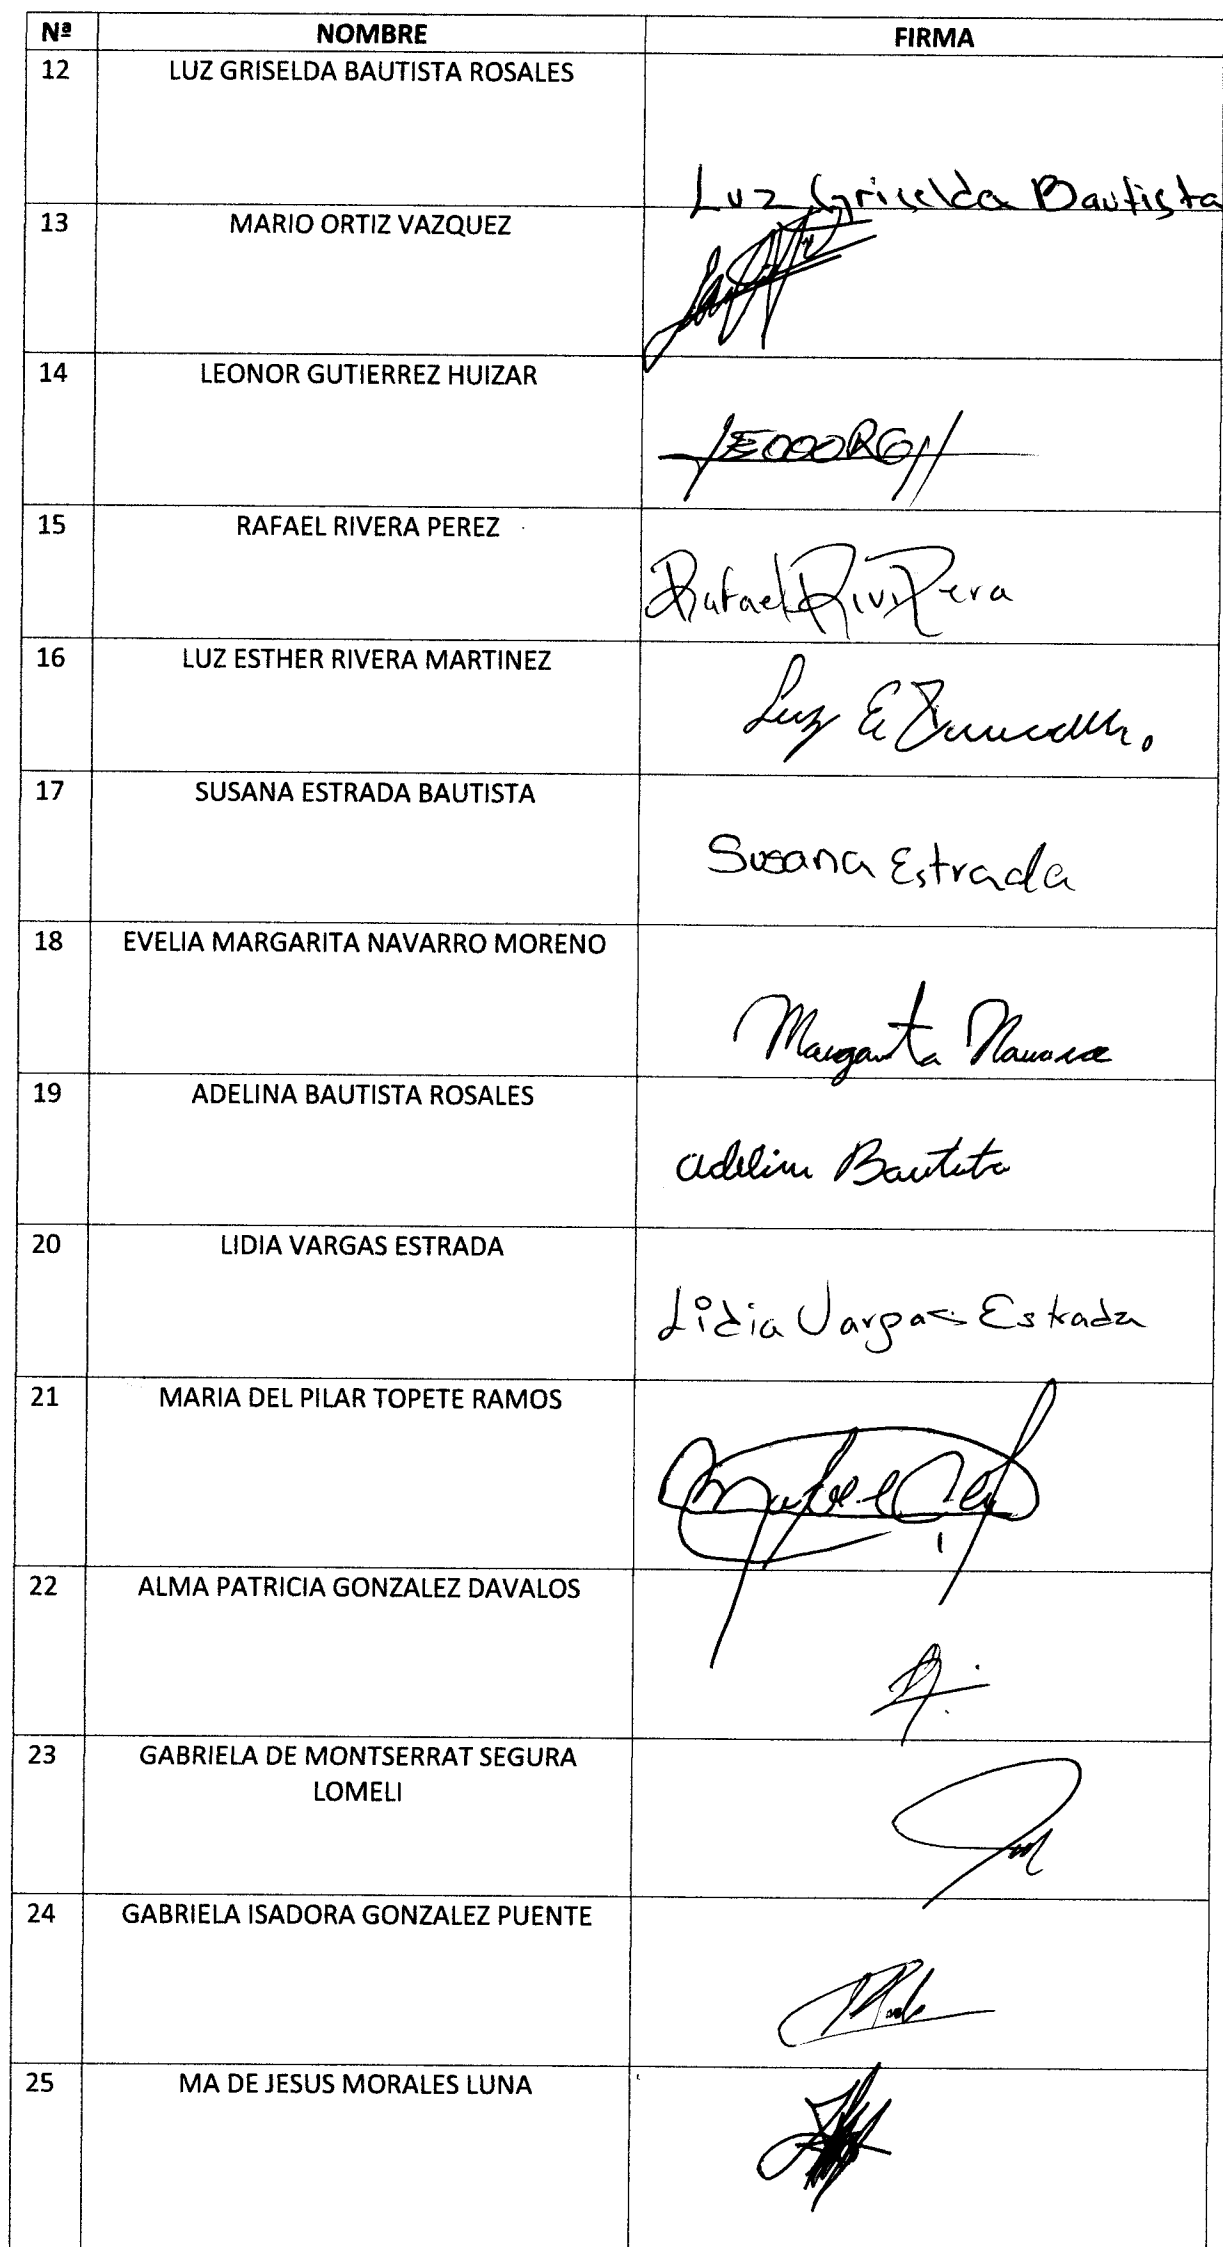 Nª NOMBRE FIRMA
12 LUZ GRISELDA BAUTISTA ROSALES
Luz Griselda Bautista
13 MARIO ORTIZ VAZQUEZ
14 LEONOR GUTIERREZ HUIZAR
15 RAFAEL RIVERA PEREZ
Rafael
16 LUZ ESTHER RIVERA MARTINEZ
Luz E
17 SUSANA ESTRADA BAUTISTA
Susana Estrada
18 EVELIA MARGARITA NAVARRO MORENO
Margarita Navarro
19 ADELINA BAUTISTA ROSALES
Adelina Bautista
20 LIDIA VARGAS ESTRADA
Lidia Vargas Estrada
21 MARIA DEL PILAR TOPETE RAMOS
22 ALMA PATRICIA GONZALEZ DAVALOS
23 GABRIELA DE MONTSERRAT SEGURA
LOMELI
24 GABRIELA ISADORA GONZALEZ PUENTE
25 MA DE JESUS MORALES LUNA